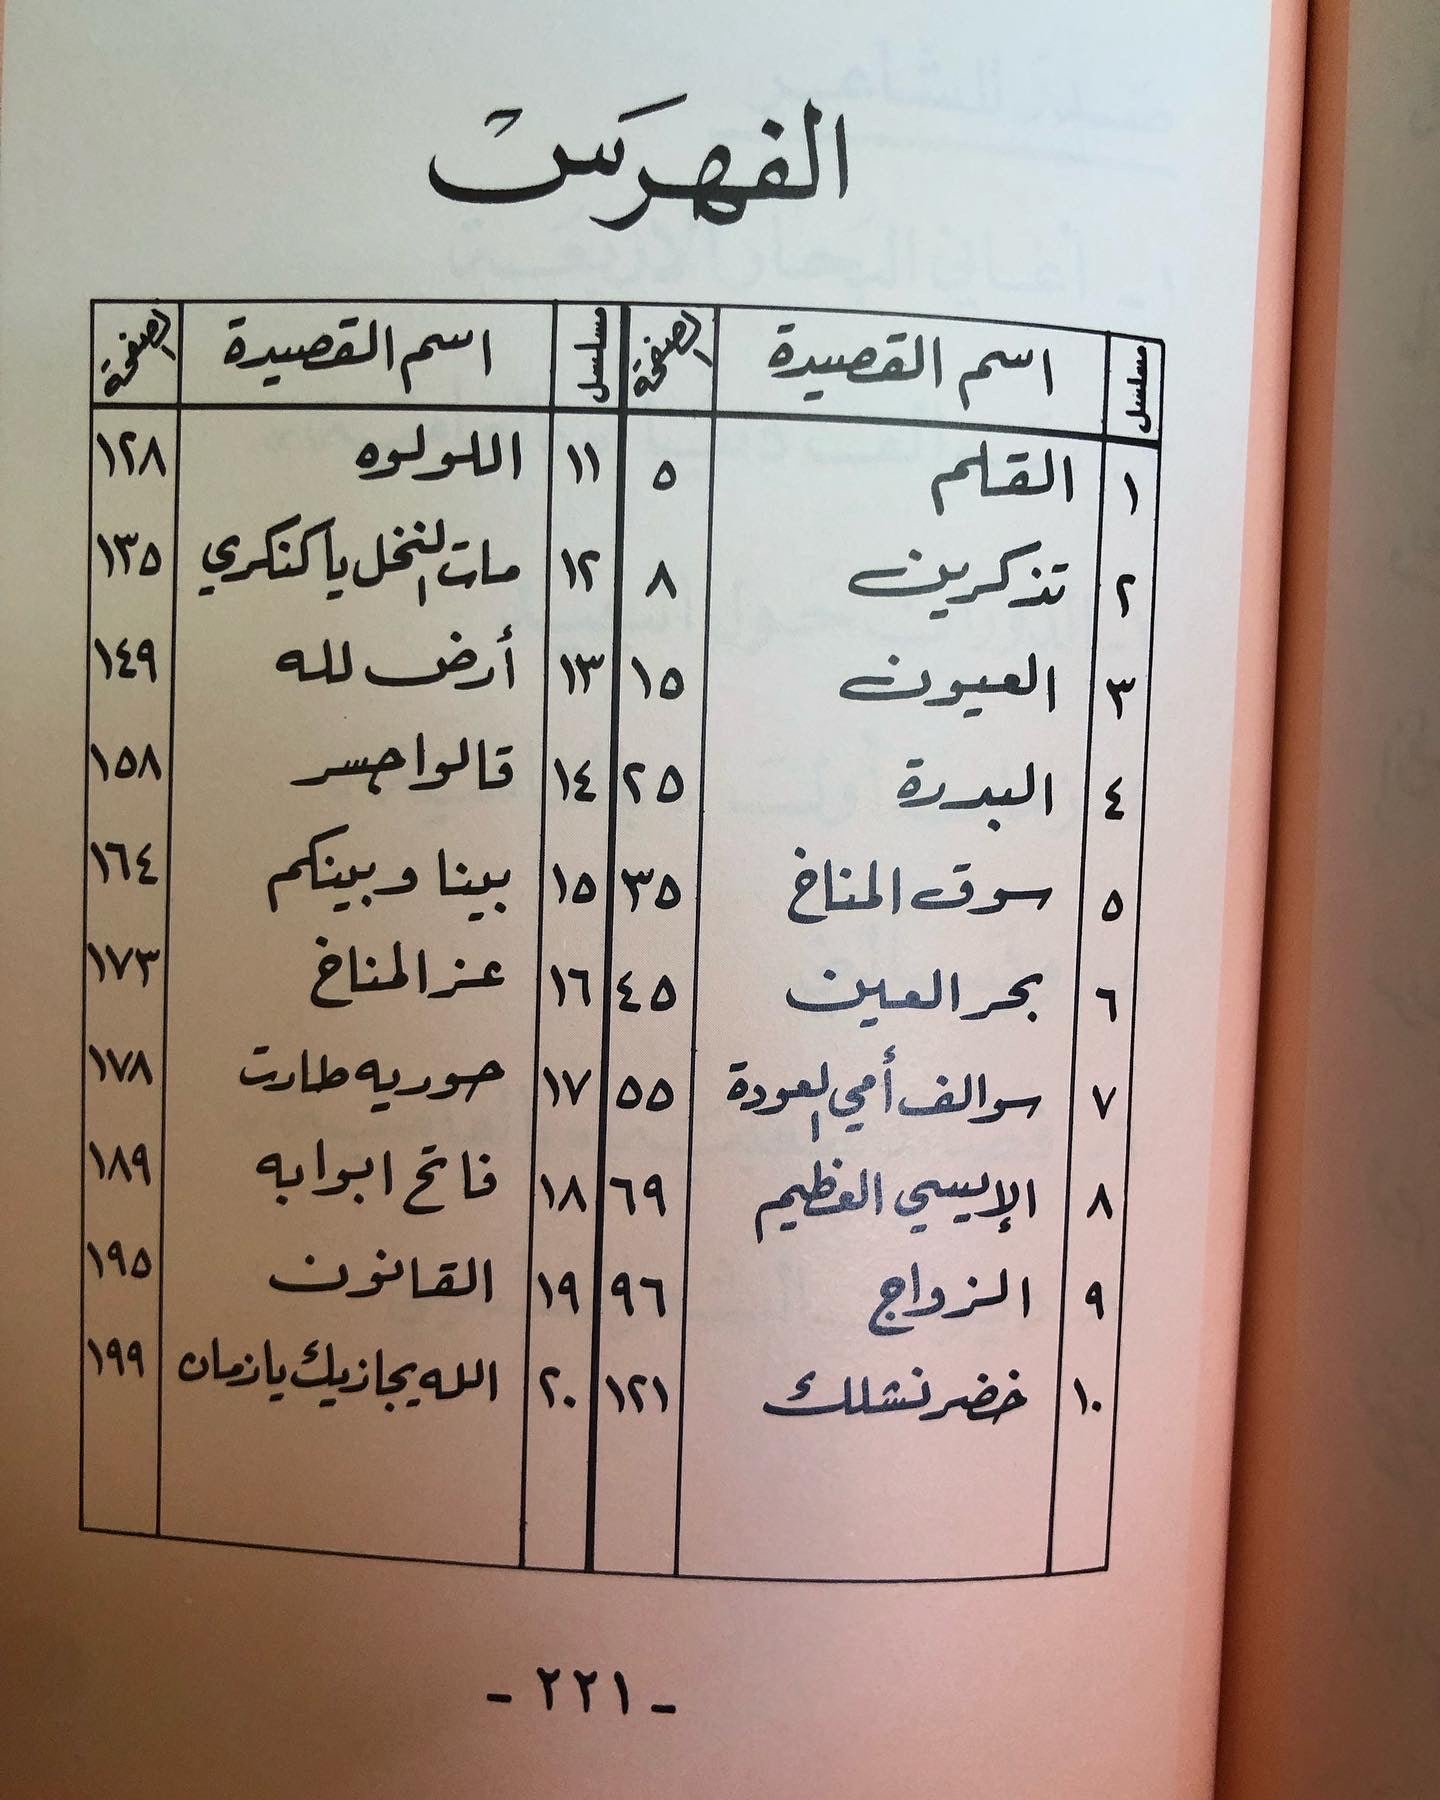 الفهرست
مسلسل اسم القصيدة الصفحة مسلسل اسم القصيدة الصفحة
١ القلم ٥ ١١ اللولوه ١٢٨
٢ تذكرين ٨ ١٢ مات النخل يا كنكري ١٣٥
٣ العيون ١٥ ١٣ أرض لله ١٤٩
٤ البدرة ٢٥ ١٤ قالوا جسر ١٥٨
٥ سوق المناخ ٣٥ ١٥ بينا وبينكم ١٦٤
٦ بحر العين ٤٥ ١٦ عنز المناخ ١٧٣
٧ سوالف أمي العودة ٥٥ ١٧ حوريه طارت ١٧٨
٨ الإيسي العظيم ٦٩ ١٨ فاتح ابوابه ١٨٩
٩ الزواج ٩٦ ١٩ القانون ١٩٥
١٠ خضر نشلك ١٢١ ٢٠ الله يجازيك يا زمان ١٩٩
- ٢٢١ -